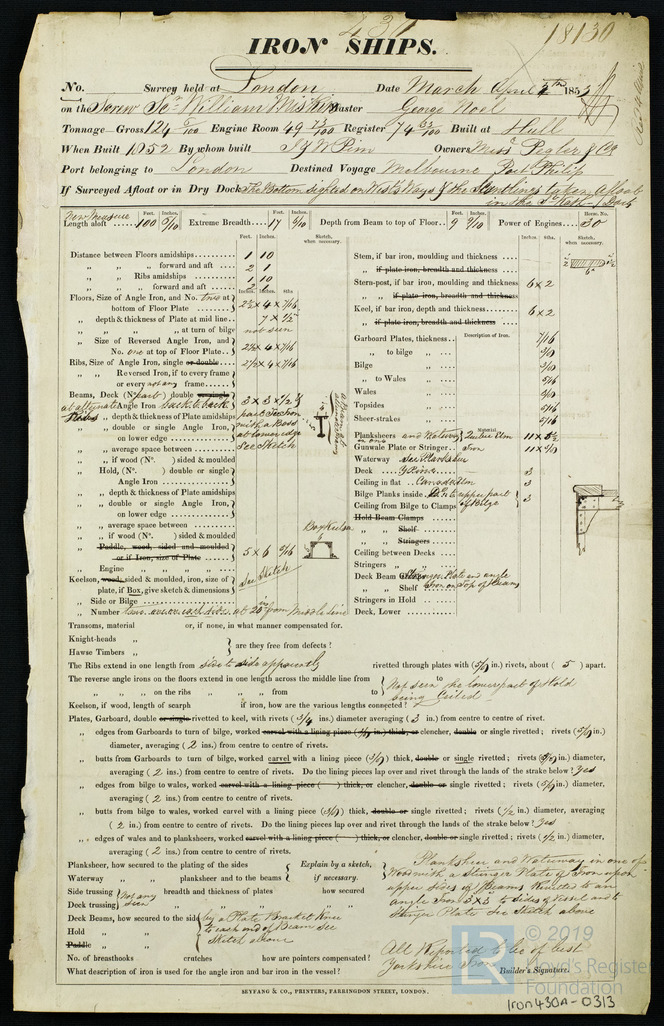 430 18130
IRON SHIPS.
No. Survey held at London Date March April 2nd 1853
on the Screw Sr William Miskin Master George Noel
Tonnage—Gross 124 /100 Engine Room 49 73/100 Register 74 33/100 Built at Hull
When Built 1852 By whom built Owners Messrs Pegler & Co
Port belonging to London Destined Voyage Melbourne Port Philip
If Surveyed Afloat or in Dry Dock The Bottom sighted on West's Ways & the Scantlings taken Afloat
in the St Kath. Dock
New Measure
Length aloft 100 Feet. Inches. Extreme Breadth 17 Feet. Inches. Depth from Beam to top of Floor 9 Feet. Inches. Power of Engines 30 Horse. No.
Feet. Inches. Sketch, when necessary.
Distance between Floors amidships 1 10
„ „ forward and aft 2 1
„ Ribs amidships 1 10
„ „ forward and aft 2
Inches. Inches. 8ths
Floors, Size of Angle Iron, and No. two at
bottom of Floor Plate 2½ x 4 x 7/16
„ depth & thickness of Plate at mid line 7 x ½
„ „ „ at turn of bilge not seen
„ Size of Reversed Angle Iron, and
No. one at top of Floor Plate 2½ x 4 x 7/16
Ribs, Size of Angle Iron, single or double 2½ x 4 x 7/16
„ „ Reversed Iron, if to every frame
or every not any frame
Beams, Deck (No. part) double or single
at alternate Angle Iron back to back 3 x 3 x ½
„ „ depth & thickness of Plate amidships part Section
„ „ double or single Angle Iron, with a Boss
on lower edge at lower edge
„ „ average space between see Sketch
„ „ if wood (No. ) sided & moulded
„ Hold, (No. ) double or single
Angle Iron
„ „ depth & thickness of Plate amidships
„ „ double or single Angle Iron,
on lower edge
„ „ average space between
„ „ if wood (No. ) sided & moulded Box Keelson
„ Paddle, wood, sided and moulded
or if Iron, size of Plate 5 x 6 9/16
„ Engine „ „ „
Keelson, wood, sided & moulded, iron, size of
plate, if Box, give sketch & dimensions See Sketch
„ Side or Bilge
„ Number two, one on each side, at 25 in from Middle line
Inches 8ths Sketch, when necessary.
Stem, if bar iron, moulding and thickness
„ if plate iron, breadth and thickness
Stern-post, if bar iron, moulding and thickness 6 x 2
„ „ if plate iron, breadth and thickness
Keel, if bar iron, depth and thickness 6 x 2
„ if plate iron, breadth and thickness
Description of Iron.
Garboard Plates, thickness 7/16
„ to bilge „
Bilge „
„ to Wales „ 5/16
Wales „
Topsides „ 5/16
Sheer-strakes „ 5/16
Material
Planksheers and Waterway in one 11 x 3½
Gunwale Plate or Stringer Iron
Waterway see Planksheer
Deck Y Pine 3
Ceiling in flat Canada Elm 3
Bilge Planks inside Do to upper part
Ceiling from Bilge to Clamps of Bilge 3
Hold Beam Clamps
„ „ Shelf
„ „ Stringers
Ceiling between Decks
Stringers „ „
Deck Beam Clamps Stringer Plate and angle
„ „ Shelf Iron on top of Beams
Stringers in Hold
Deck, Lower
Transoms, material or, if none, in what manner compensated for.
Knight-heads „
Hawse Timbers „ are they free from defects?
The Ribs extend in one length from side to side apparently rivetted through plates with (5/8) in.) rivets, about ( 5 ) apart.
The reverse angle irons on the floors extend in one length across the middle line from to
„ „ on the ribs „ „ „ from to Not seen the lower part of Hold being Ceiled
Keelson, if wood, length of scarph if iron, how are the various lengths connected?
Plates, Garboard, double or single rivetted to keel, with rivets (3/4 ins.) diameter averaging ( 3 in.) from centre to centre of rivet.
„ edges from Garboards to turn of bilge, worked carvel with a lining piece (5/8) in.) thick, or clencher, double or single rivetted; rivets (5/8) in.)
diameter, averaging ( 2 ins.) from centre to centre of rivets.
„ butts from Garboards to turn of bilge, worked carvel with a lining piece (3/8) thick, double or single rivetted; rivets (5/8) in.)
averaging ( 2 ins.) from centre to centre of rivets. Do the lining pieces lap over and rivet through the lands of the strake below? Yes
„ edges from bilge to wales, worked carvel with a lining piece ( ) thick, or clencher, double or single rivetted; rivets (5/8) in.) diameter,
averaging ( 2 ins.) from centre to centre of rivets.
„ butts from bilge to wales, worked carvel with a lining piece (3/8) thick, double or single rivetted; rivets (1/2 in.) diameter, averaging
( 2 in.) from centre to centre of rivets. Do the lining pieces lap over and rivet through the lands of the strake below? Yes
„ edges of wales and to planksheers, worked carvel with a lining piece ( ) thick, or clencher, double or single rivetted; rivets (1/2 in.) diameter,
averaging ( 2 ins.) from centre to centre of rivets.
Planksheer, how secured to the plating of the sides Explain by a sketch,
Waterway „ „ planksheer and to the beams if necessary.
Side trussing Not any breadth and thickness of plates how secured
Deck trussing seen „ „ „ „
Planksheer and Waterway in one of
Wood with a Stringer Plate of Iron upon
upper sides of Beams Rivetted to an
angle Iron 3 x 3 to sides of Vessel and to
Stringer Plate see Sketch above
Deck Beams, how secured to the side by a Plate Bracket Knee
Hold „ „ to each end of Beam See
Paddle „ „ Sketch above
No. of breasthooks crutches how are pointers compensated?
What description of iron is used for the angle iron and bar iron in the vessel?
All Reported to be of best
Yorkshire Iron Builder's Signature.
SEYFANG & CO., PRINTERS, FARRINGDON STREET, LONDON.
LR
© 2019
Lloyd's Register
Foundation
Iron430A-0313